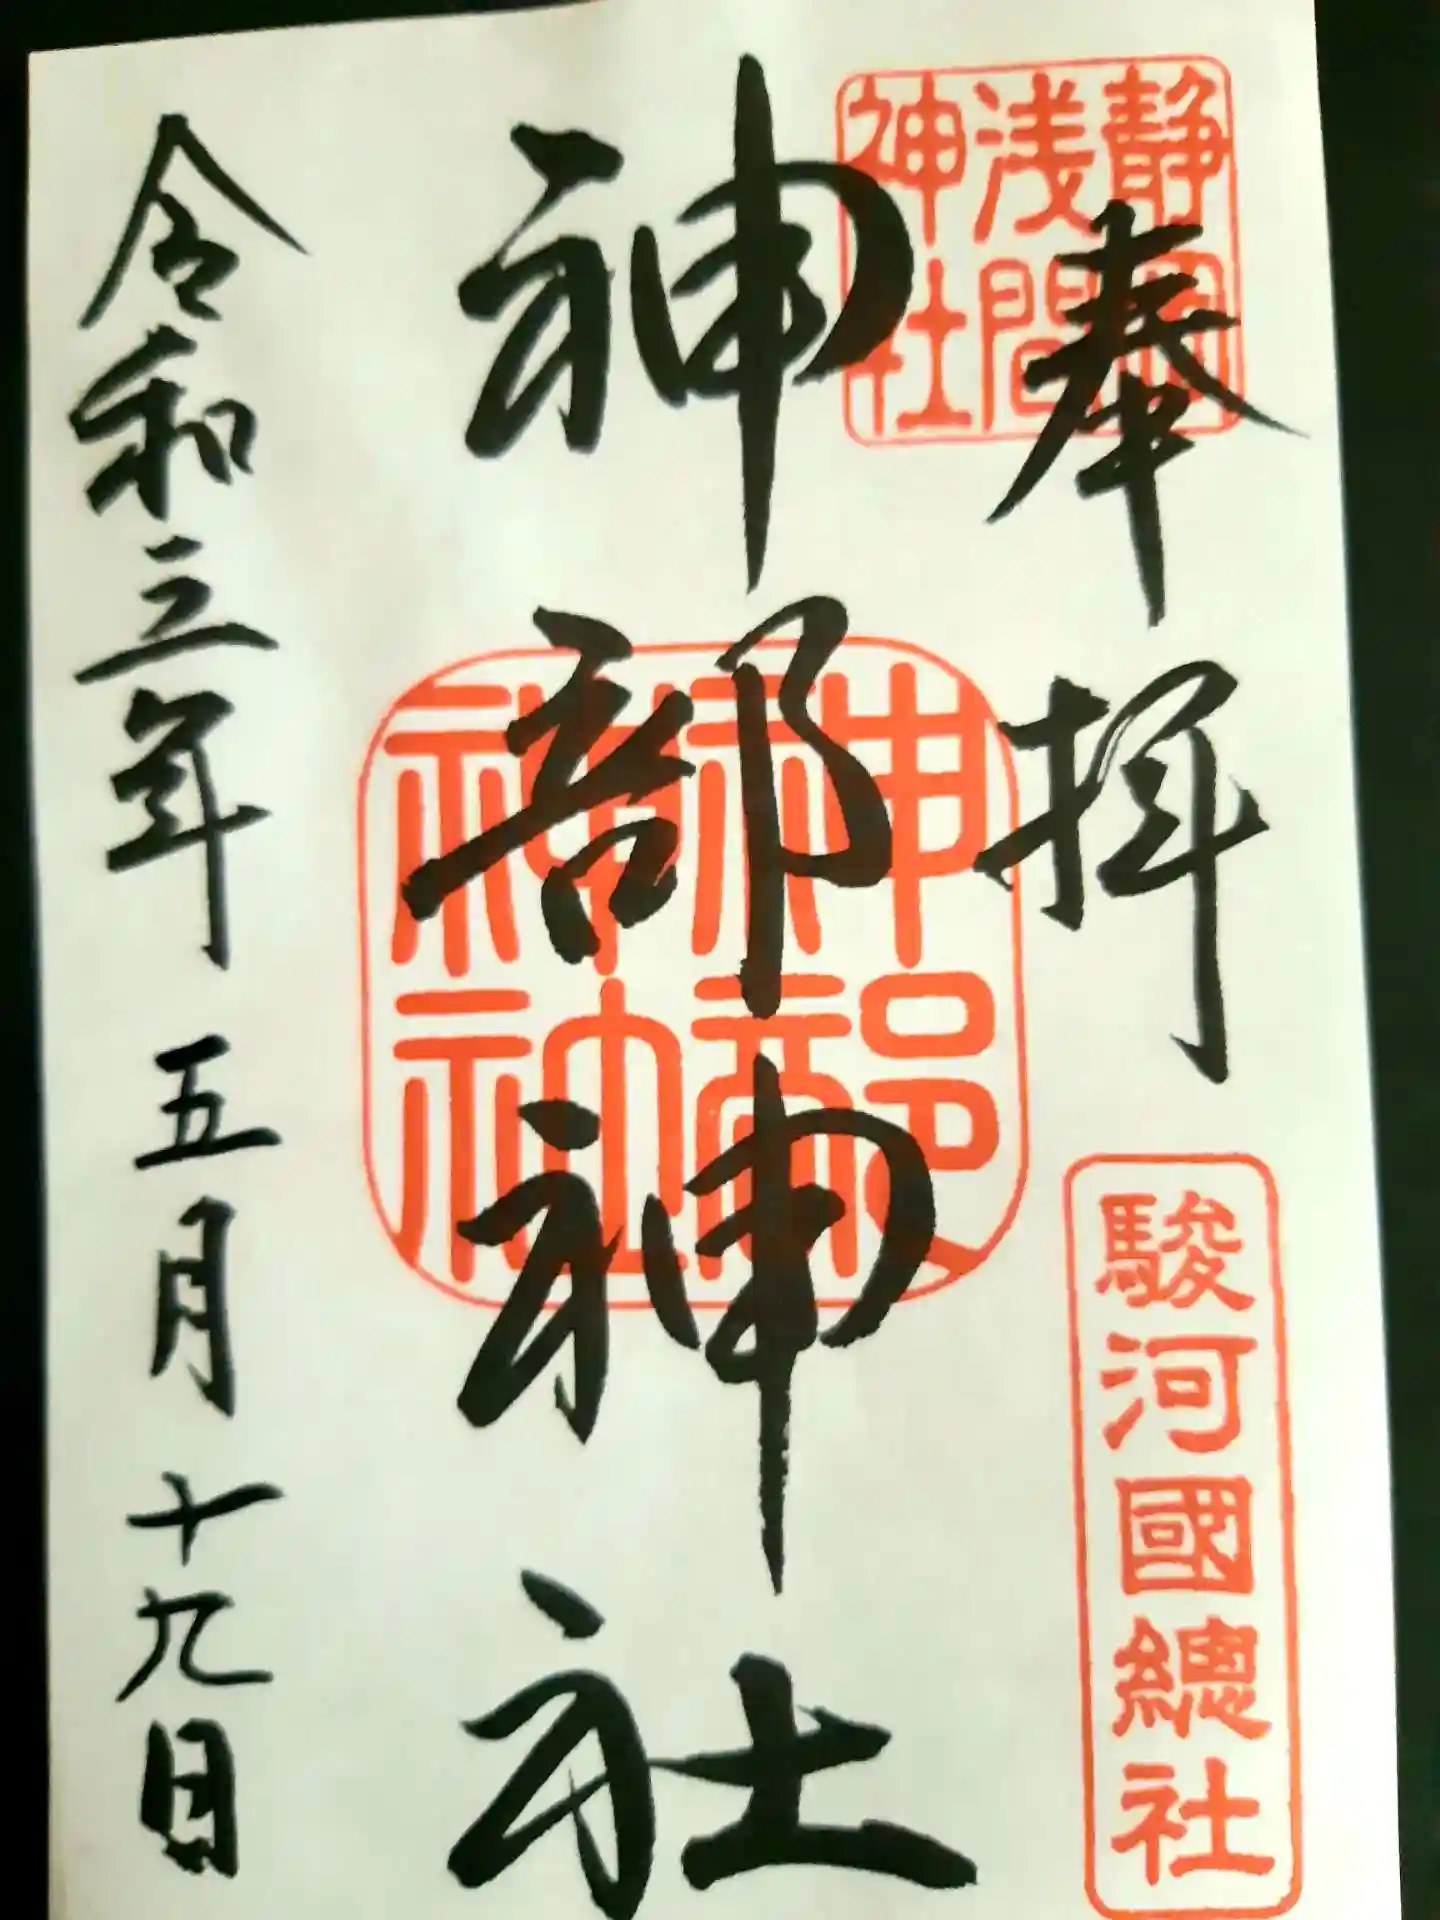 奉拝
静岡
浅間
神社
駿河國總社
神部神社
神部
神社
令和三年五月十九日